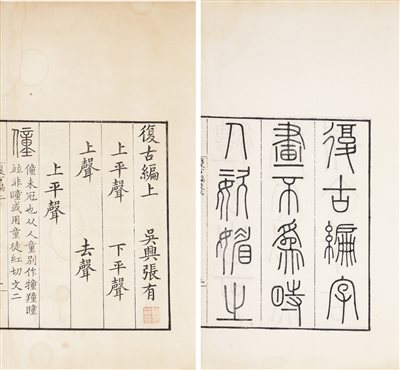 復古編字
畫不為時
人媚之
復古編上 吳興張有
上平聲 下平聲
上聲 去聲
上平聲
僮
僮未冠也从人童別作
並非瞳或用童徒紅切文二